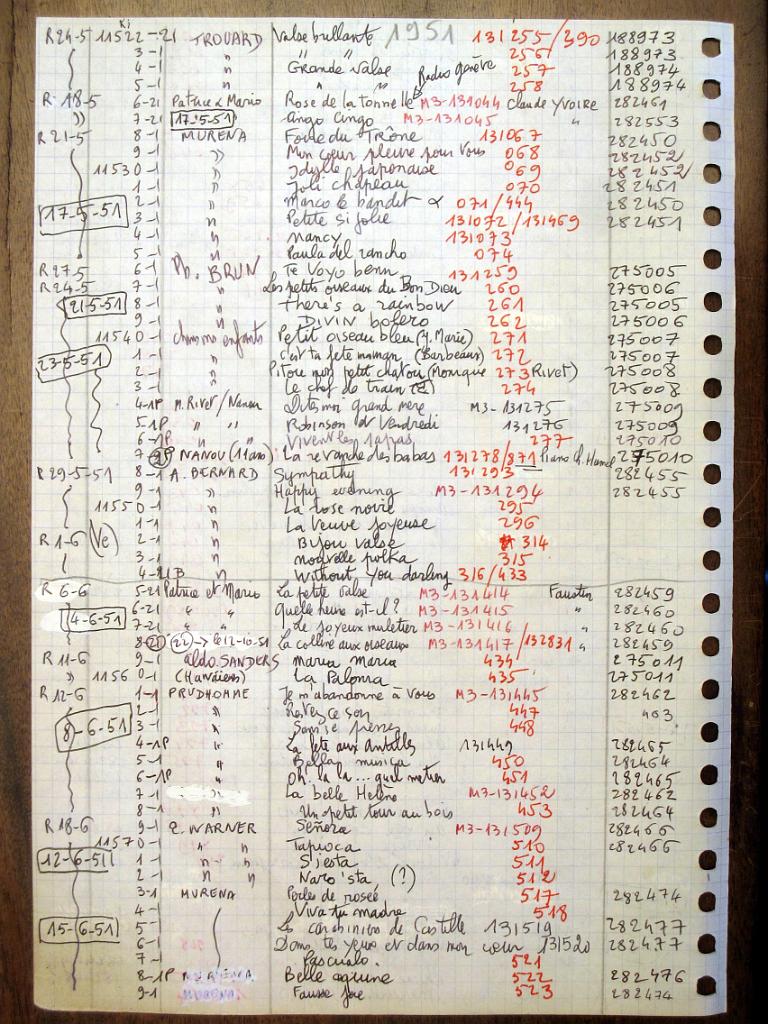 Ki 1951
R24-5 11522-21 TROUARD Valse brillante 131255/390 188973
3-1 " " " 256/ 188973
4-1 " Grande Valse 257 188974
5-1 " " " Radio Genève 258 188974
R. 18-5 6-21 Patrice & Mario Rose de la tonnelle M3-131044 Claude YVOIRE 282461
" 7-21 17-5-51 Cingo Cingo M3-131045 " 282553
R21-5 8-1 MURENA Foire du Trône 131067 282450
9-1 " Mon cœur pleure pour vous 068 282452
11530-1 " Idylle japonaise 069 282452
1-1 " Joli chapeau 070 282451
2-1 " Marco le bandit 071/444 282450
17-5-51 3-1 " Petite si jolie 131072/131469 282451
4-1 " Nancy 131073
5-1 " Paula del rancho 074
R27-5 6-1 Ph. BRUN Te Voyo benn 131259 275005
R24-5 7-1 " Les petits oiseaux du Bon Dieu 260 275006
21-5-51 8-1 " There's a rainbow 261 275005
9-1 " DIVIN bolero 262 275006
11540-1 chansons enfants Petit oiseau bleu (M. Marie) 271 275007
23-5-51 1-1 " c'est ta fête maman (Barbeaux) 272 275007
2-1 " Pitou mon petit chaton (Monique 273 Rivet) 275008
3-1 " Le chef de train 274 275008
4-1P M. Rivet/Nanou Dites moi grand mère M3-131275 275009
5-1P " " Robinson et Vendredi 131276 275009
6-1P " " Vivent les papas 277 275010
7- NANOU (11ans) La revanche des babas 131278/871 Piano Ch. Hamel 275010
R29-5-51 8-1 A. BERNARD Sympathy 131293 282455
9-1 " Happy evening M3-131294 282455
11550-1 " La rose noire 295
1-1 " La Veuve Joyeuse 296
R1-6 (Ve) 2-1 " Bijou valse 314
3-1 " nouvelle polka 315
4-21B " Without you darling 316/433
R6-6 5-21 Patrice et Mario La petite valse M3-131414 Faustin 282459
4-6-51 6-21 " " Quelle heure est-il? M3-131415 " 282460
7-21 " " Le joyeux muletier M3-131416 282460
8-21 22 → le 12-10-51 La colline aux oiseaux M3-131417/132831 " 282459
R11-6 9-1 aldo. SANDERS maria maria 434 275011
" 11560-1 (Hawaïens) La Paloma 435 275011
R12-6 1-1 PRUDHOMME Je m'abandonne à Vous M3-131445 282462
2-1 " Restez ce soir 447 463
8-6-51 3-1 " 448
4-1P " La fête aux Antilles 131449 282465
5-1 " Bella musica 450 282464
6-1P " Oh! la la... quel métier 451 282465
7-1 " La belle Helène M3-131452 282462
8-1 " Un petit tour au bois 453 282464
R18-6 9-1 E. WARNER Señora M3-131509 282466
11570-1 " " Tapioca 510 282466
12-6-51 1-1 " " Siesta 511
2-1 " " Naro'sta (?) 512
3-1 MURENA Perles de rosée 517 282474
4-1 Viva tu madre 518
15-6-51 5-1 Le carabinier de Castille 131519 282477
6-1 Dans tes yeux et dans mon cœur 131520 282477
7-1 Pascualo. 521
8-1P MURENA Belle aquine 522 282476
9-1 Fausse joie 523 282474